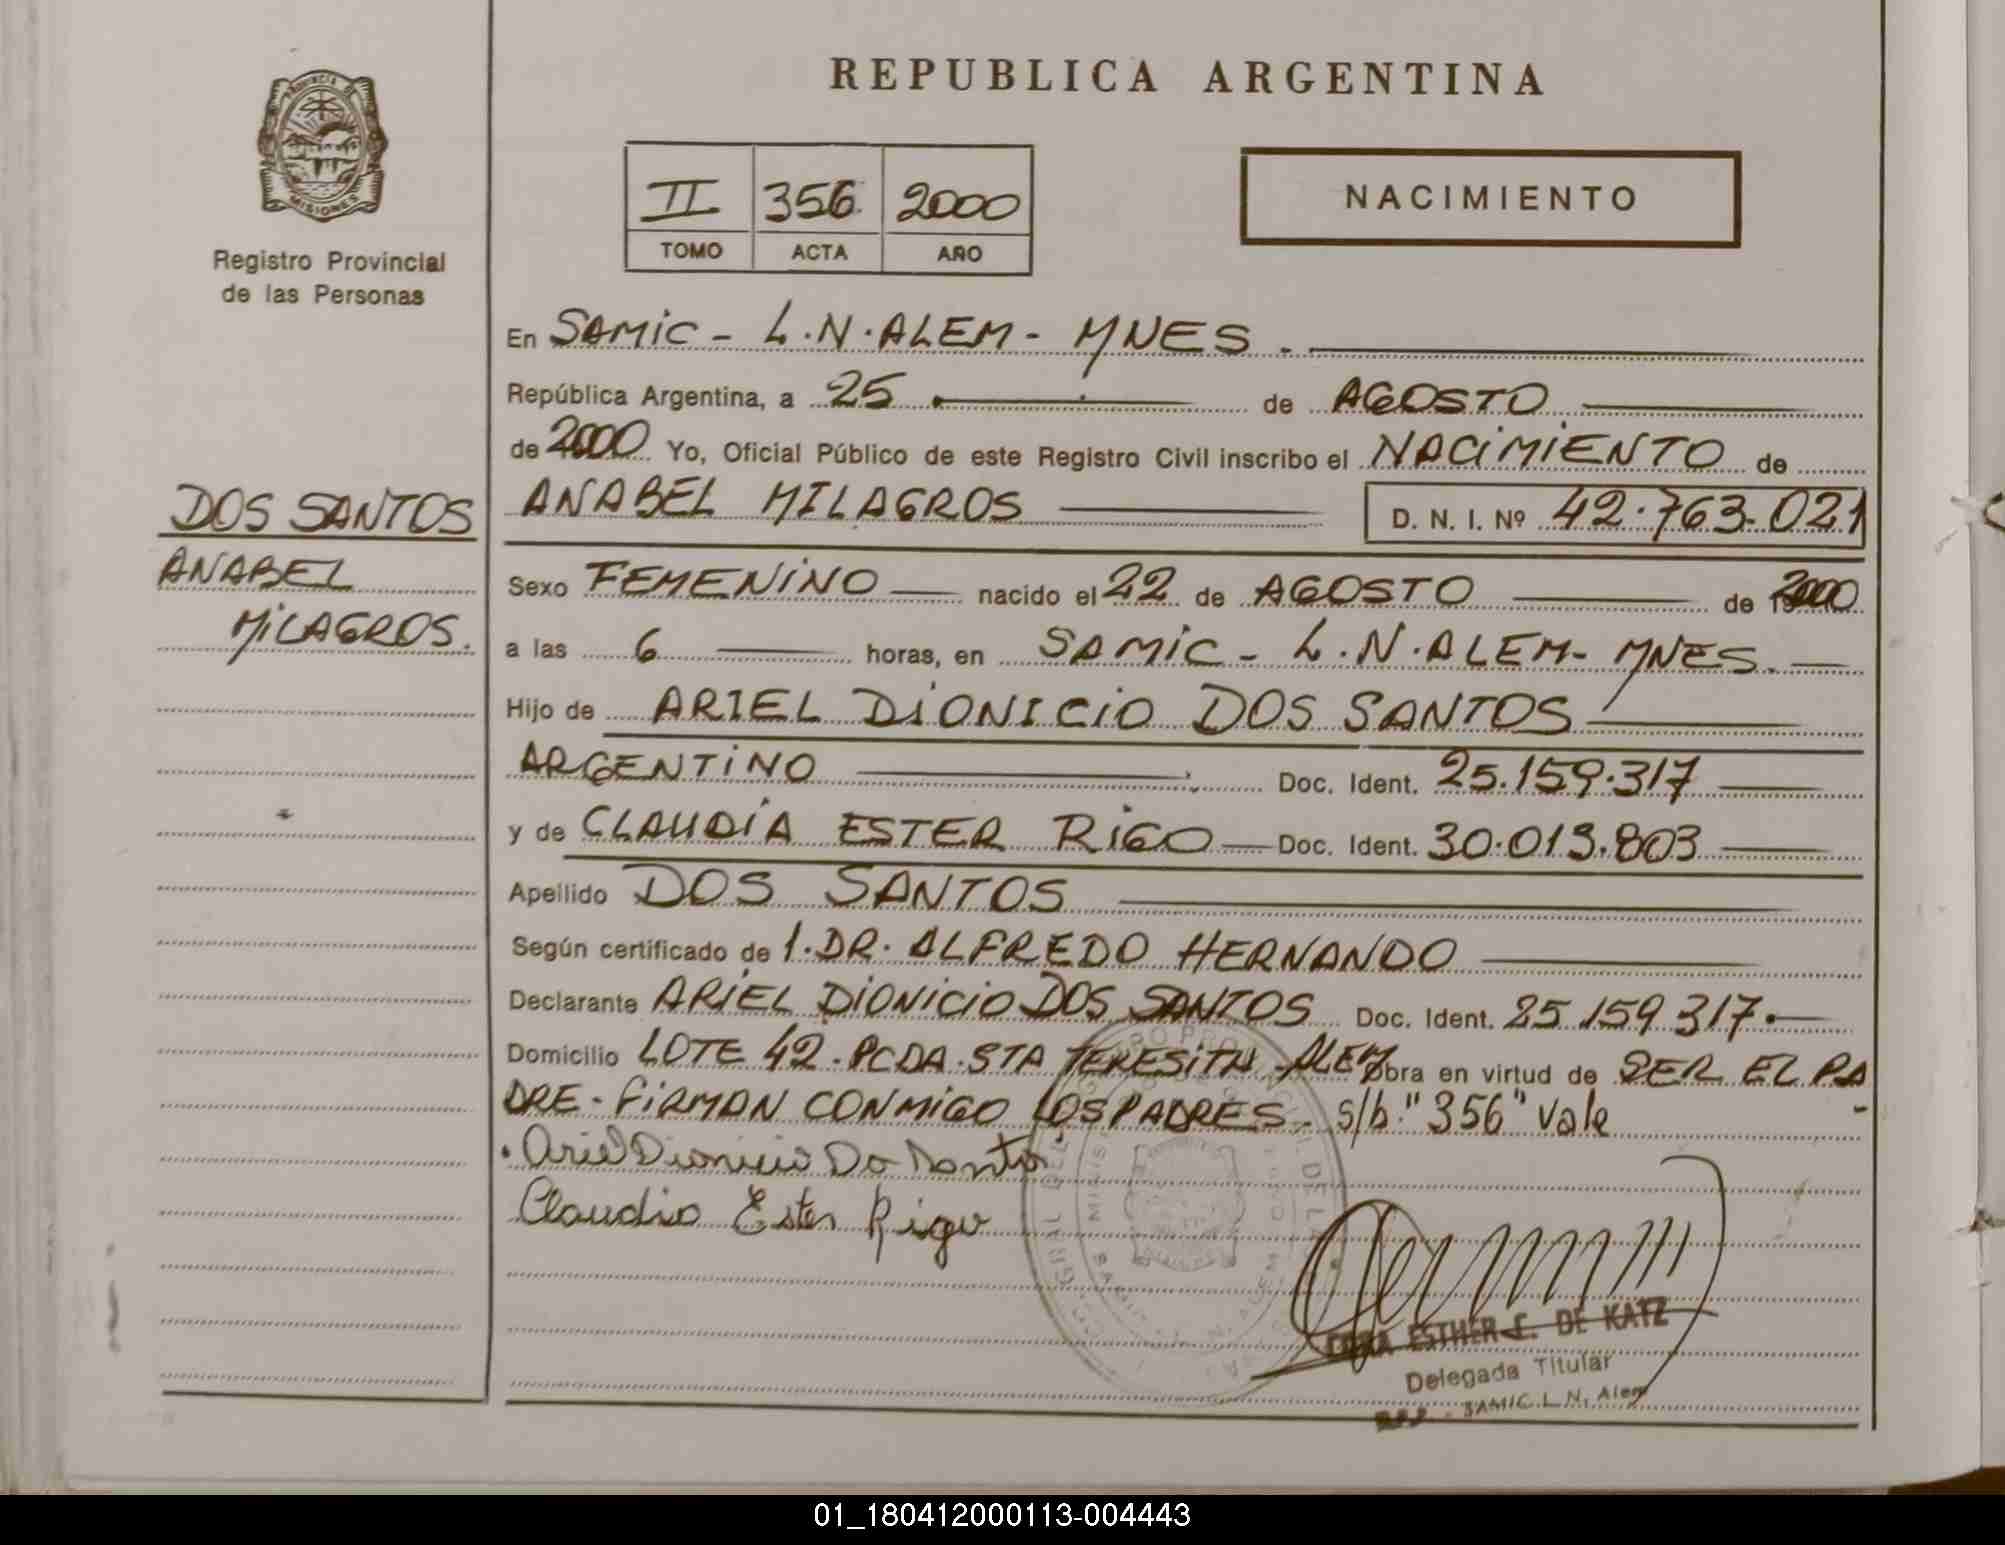 REPUBLICA ARGENTINA
PROVINCIA DE
MISIONES
Registro Provincial
de las Personas
II 356 2000
TOMO ACTA AÑO
NACIMIENTO
DOS SANTOS
ANABEL
MILAGROS.
En SAMIC - L.N. ALEM - MNES.
República Argentina, a 25 de AGOSTO
de 2000 Yo, Oficial Público de este Registro Civil inscribo el NACIMIENTO de
ANABEL MILAGROS D. N. I. Nº 42.763.021
Sexo FEMENINO nacido el 22 de AGOSTO de 2000
a las 6 horas, en SAMIC - L.N. ALEM - MNES.
Hijo de ARIEL DIONICIO DOS SANTOS
ARGENTINO Doc. Ident. 25.159.317
y de CLAUDIA ESTER RIGO Doc. Ident. 30.013.803
Apellido DOS SANTOS
Según certificado de 1. DR. ALFREDO HERNANDO
Declarante ARIEL DIONICIO DOS SANTOS Doc. Ident. 25.159.317.
Domicilio LOTE 42 - PCDA. STA TERESITA ALEM Obra en virtud de SER EL PA
DRE - FIRMAN CONMIGO LOS PADRES. s/b: "356" Vale -
Ariel Dionicio Do Santos
Claudia Ester Rigo
ESTHER E. DE KATZ
Delegada Titular
SAMIC L.N. Alem
01_180412000113-004443